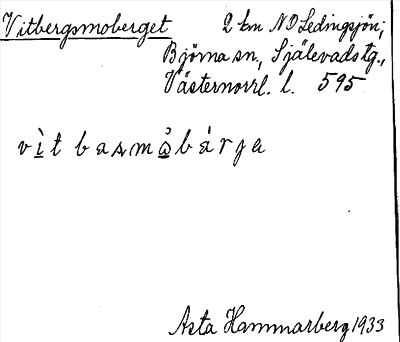 Vitbergsmoberget 2 km NO Ledingsjön;
Björna sn, Själevads tg.,
Västernorrl. l. 595
vìt basmåbárja
Asta Hammarberg 1933